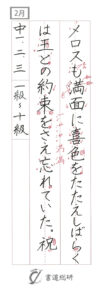 2月
メロスも満面に喜色をたたえしばらく
は王との約束をさえ忘れていた。祝
中一、二、三 一級〜十級
書道総研